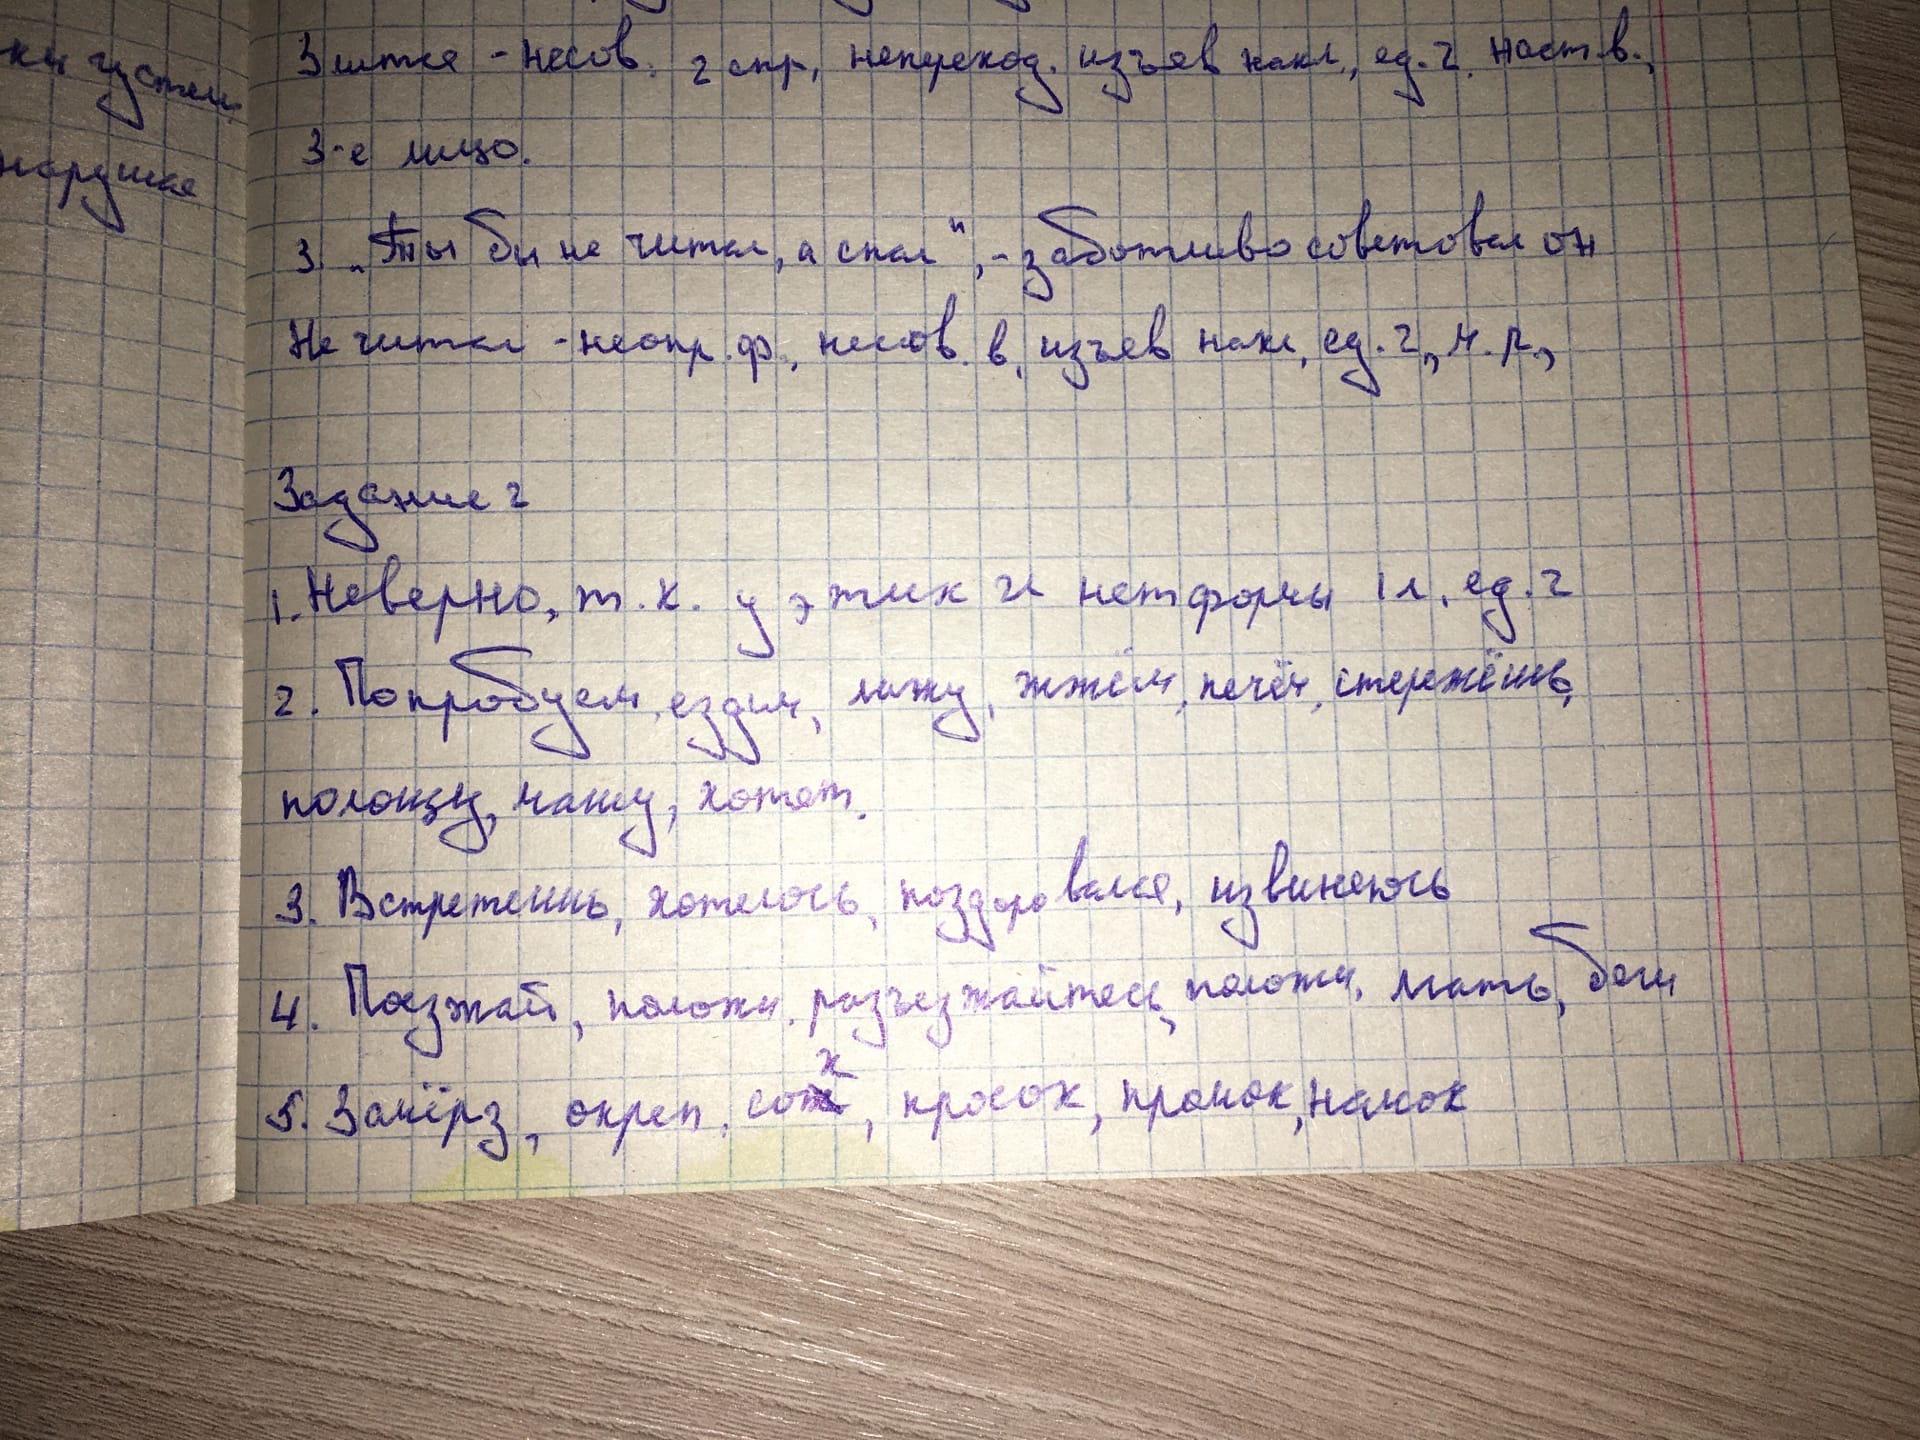 ки густеи
нарушка
Злится - несов. 2 спр, непереход. изъяв накл., ед. ч. наст. в.,
3-е лицо.
3. „Ты бы не читал, а спал", - заботливо советовал он
Не читал - неопр. ф., несов. в, изъяв накл, ед. ч., м. р.,
Задание 2
1. Неверно, т. к. у этих гл нет формы 1 л. ед. ч
2. Попробуем, ездим, лажу, жжём, печём, стережёшь,
полощу, машу, хотят.
3. Встретишь, хотелось, поздоровался, извиняюсь
4. Поезжай, положи. разъезжайтесь, положи, лгать, беги
5. Замёрз, окреп, сох, просох, промок, намок